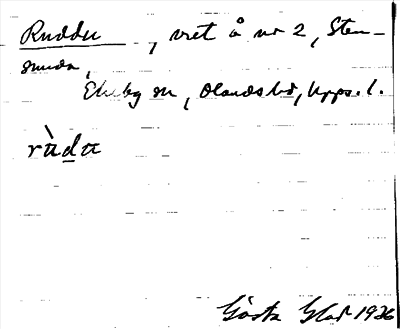 Ruddu, vret å nr 2, Sten-
smeda,
Ekeby sn, Olands hd, Upps. l.
rùdu
Gösta 1936